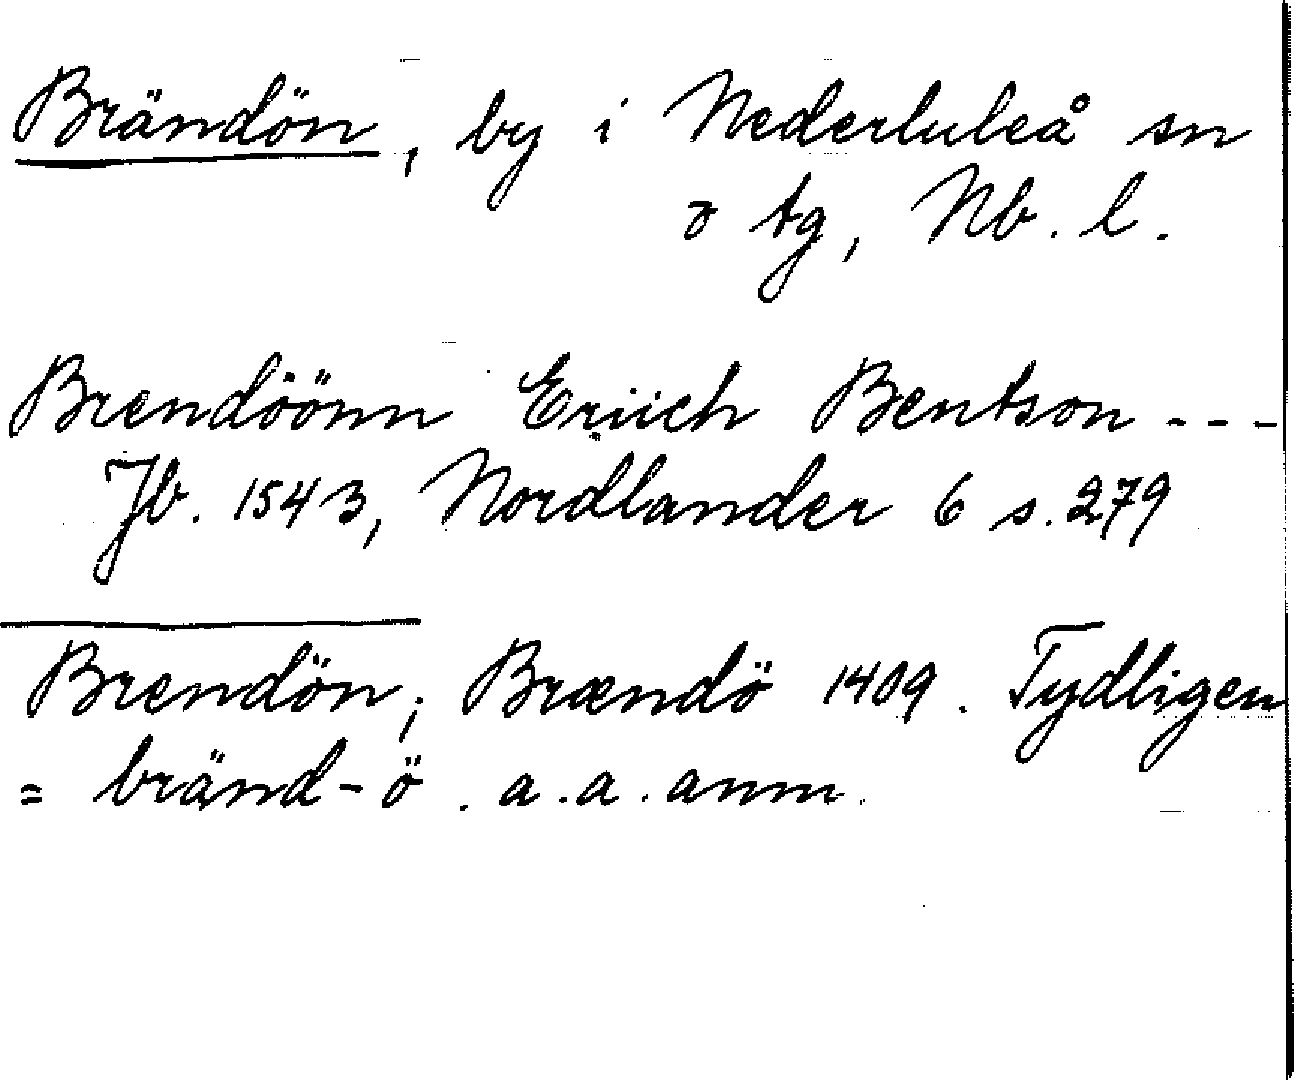 Brändön, by i Nederluleå sn
o tg, Nb. l.
Brendöönn Eriich Bentson ---
Jb. 1543, Nordlander 6 s. 279
Brendön; Brændö 1409. Tydligen
= bränd-ö. a.a. anm.